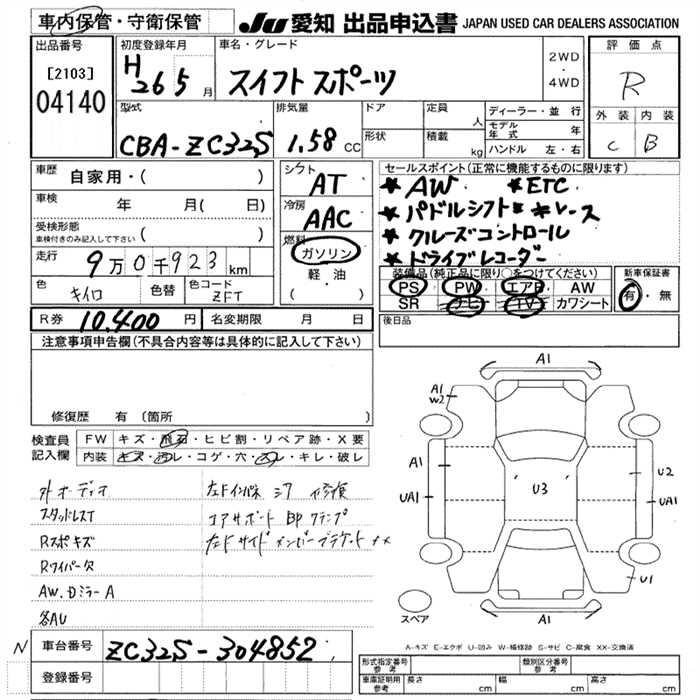 車内保管・守衛保管
JU 愛知 出品申込書 JAPAN USED CAR DEALERS ASSOCIATION
出品番号
[2103]
04140
初度登録年月
H 26 5 月
車名・グレード
スイフトスポーツ
2WD
・
4WD
評価点
R
型式
CBA-ZC32S
排気量
1.58 CC
ドア
定員 人
形状
積載 kg
ディーラー・並行
モデル年式 年
ハンドル 左・右
外装 内装
C B
車歴
自家用・( )
車検 年 月( 日)
受検形態
車検付きのみ記入して下さい ( )
走行 9万0千923km
色 キイロ
色替
色コード ZFT
シフト AT
冷房 AAC
燃料
ガソリン
軽油
( )
セールスポイント(正常に機能するものに限ります)
★ AW ★ ETC
★ パドルシフト ★ キーレース
★ クルーズコントロール
★ ドライブレコーダー
装備品(純正品に限り○をつけてください)
PS PW エアB AW
SR ナビ TV カワシート
新車保証書
有・無
R券 10,400 円
名変期限 月 日
後日品
注意事項申告欄(不具合内容等は具体的に記入して下さい)
修復歴 有(箇所 )
検査員記入欄
FW キズ・飛石・ヒビ割・リペア跡・X要
内装 キズ・汚レ・コゲ・穴・スレ・キレ・破レ
外オーディオ
スタッドレスT
Rスポキズ
Rワイパー欠
AW.Dミラー A
各AU
左Fインパネ 修復
コアサポート BP クランプ
左Fサイドメンバーブラケット XX
A1
A1
W2
A1
UA1
U3
U2
UA1
U1
A1
スペア
A-キズ E-エクボ U-凹み W-補修跡 S-サビ C-腐食 XX-交換済
N
車台番号 ZC32S-304852
登録番号
形式指定番号 参考
類別区分番号 参考
車庫証明用 参考
長さ cm 幅 cm 高さ cm